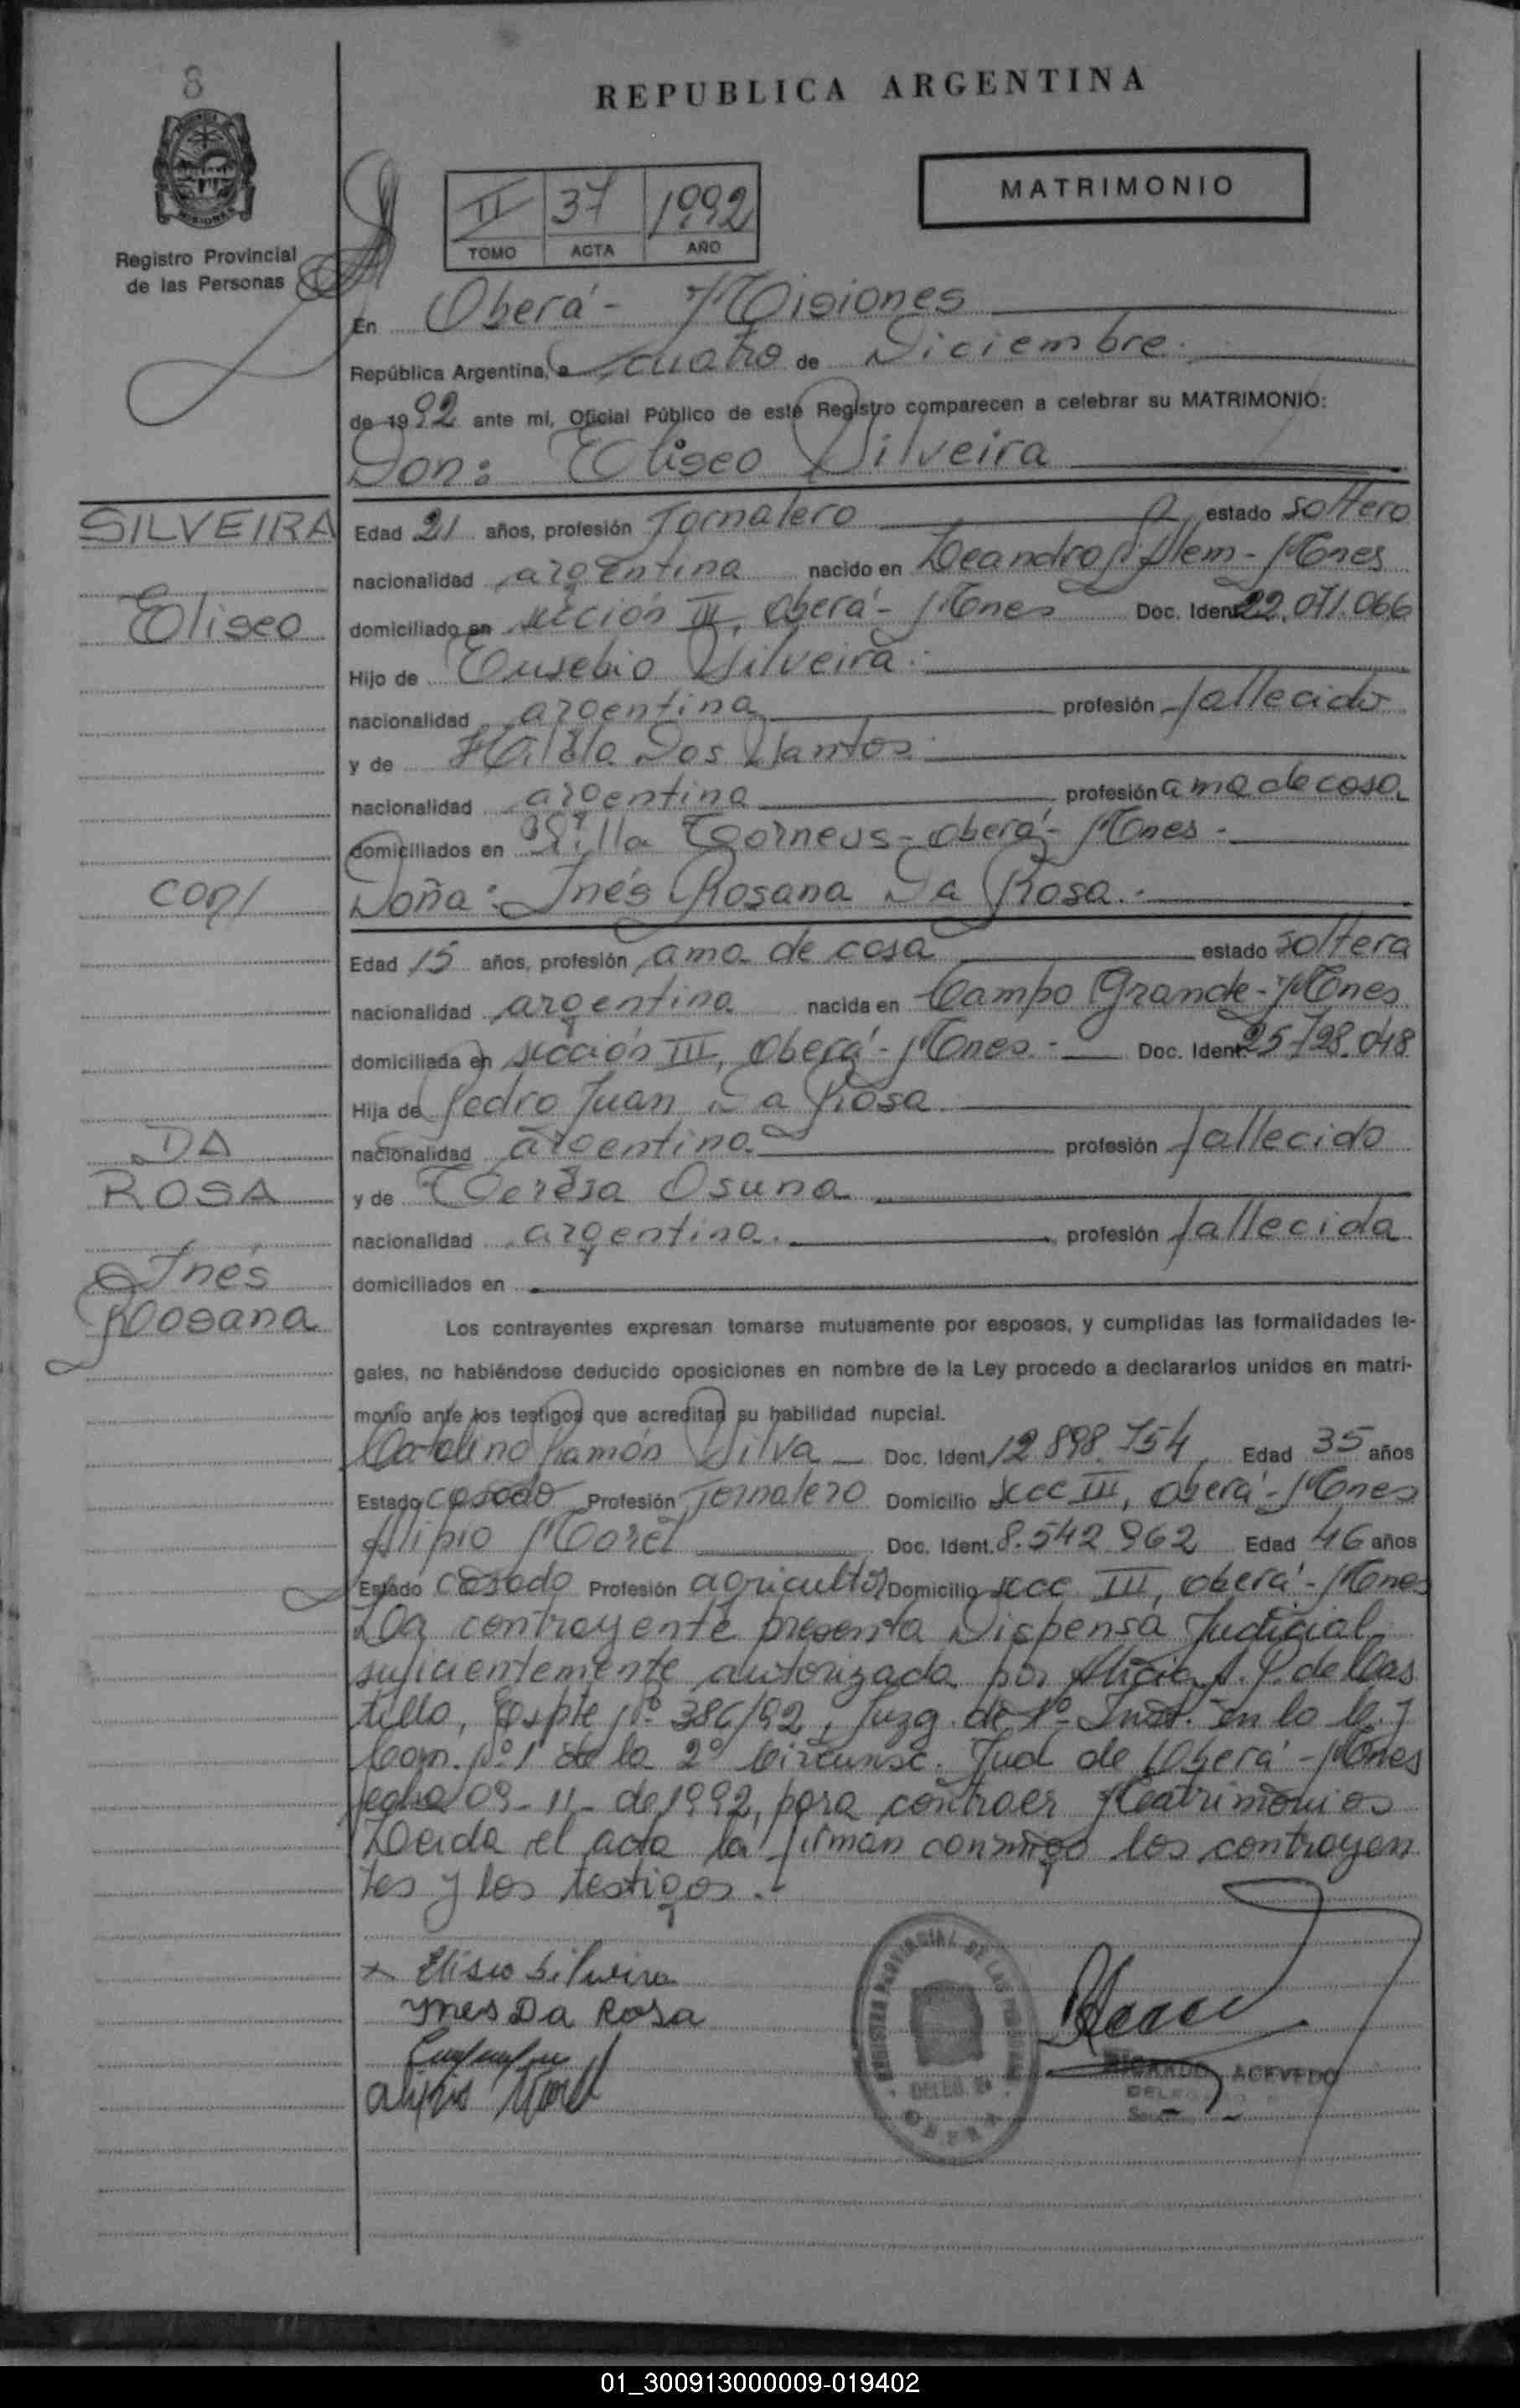 8
REPUBLICA ARGENTINA
MATRIMONIO
II 37 1992
TOMO ACTA AÑO
Registro Provincial
de las Personas
En Oberá - Misiones
República Argentina, a cuatro de Diciembre.
de 1992 ante mi, Oficial Público de este Registro comparecen a celebrar su MATRIMONIO:
Don: Eliseo Silveira
SILVEIRA
Eliseo
con/
DA
ROSA
Inés
Rosana
Edad 21 años, profesión Jornalero estado soltero
nacionalidad argentina nacido en Leandro N Alem - Mnes
domiciliado en sección III, Oberá - Mnes Doc. Ident. 22.071.066
Hijo de Eusebio Silveira.
nacionalidad argentina profesión fallecido
y de Hilda Dos Santos.
nacionalidad argentina profesión ama de casa
domiciliados en Villa Torneus - Oberá - Mnes.
Doña: Inés Rosana Da Rosa.
Edad 15 años, profesión ama de casa estado soltera
nacionalidad argentina nacida en Campo Grande - Mnes
domiciliada en sección III, Oberá - Mnes. Doc. Ident. 25.728.048
Hija de Pedro Juan Da Rosa
nacionalidad argentina profesión fallecido
y de Teresa Osuna
nacionalidad argentina. profesión fallecida
domiciliados en
Los contrayentes expresan tomarse mutuamente por esposos, y cumplidas las formalidades le-
gales, no habiéndose deducido oposiciones en nombre de la Ley procedo a declararlos unidos en matri-
monio ante los testigos que acreditan su habilidad nupcial.
Catalino Ramón Silva Doc. Ident. 12.898.754 Edad 35 años
Estado casado Profesión Jornalero Domicilio secc III, Oberá - Mnes
Alipio Morel Doc. Ident. 8.542.962 Edad 46 años
Estado casado Profesión agricultor Domicilio secc III, Oberá - Mnes
La contrayente presenta Dispensa Judicial
suficientemente autorizada por Alicia A. P. de Cas
tillo, Expte Nº 386/92, Juzg. de 1º Inst. en lo C. y
Com. Nº 1 de la 2º Circunsc. Jud de Oberá - Mnes
fecha 09-11- de 1992, para contraer Matrimonio
Leida el acta la firman conmigo los contrayen
tes y los testigos.
x Eliseo Silveira
Ynes Da Rosa
Alipio Morel
REGISTRO PROVINCIAL DE LAS PERSONAS
OBERA
RICARDO ACEVEDO
01_300913000009-019402